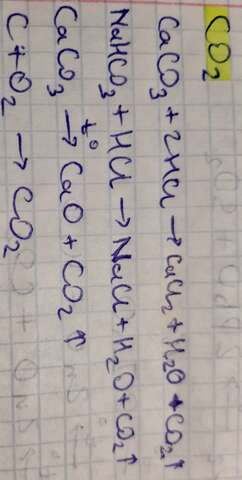 CO₂
CaCO₃ + 2HCl → CaCl₂ + H₂O + CO₂↑
NaHCO₃ + HCl → NaCl + H₂O + CO₂↑
CaCO₃ →t° CaO + CO₂↑
C + O₂ → CO₂